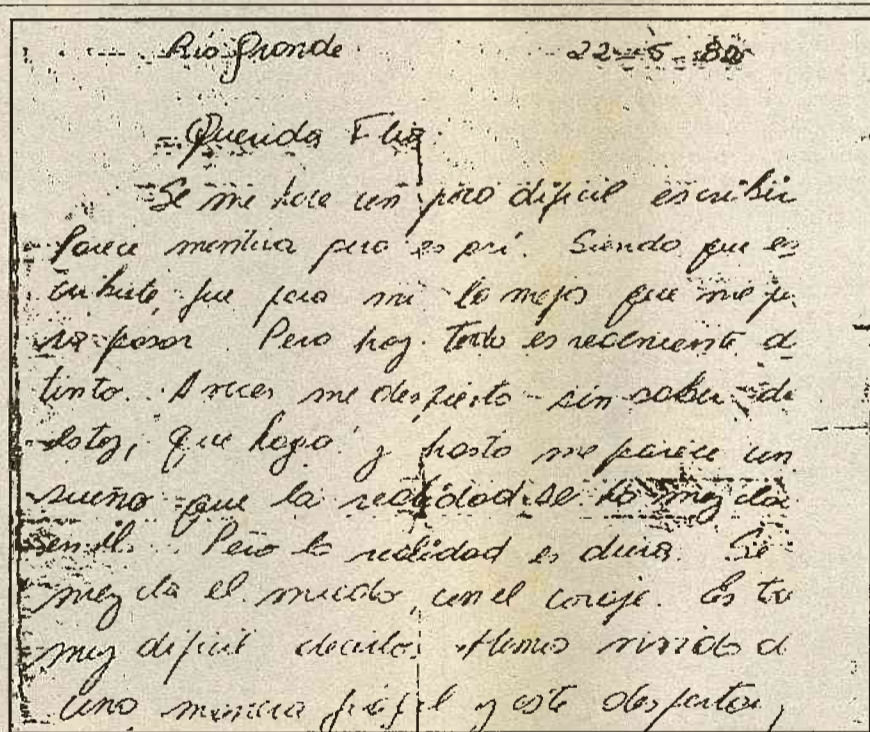 Rio Grande 22-5-82
Querida Flia.
Se me hace un poco dificil escribir
Parece mentira pero es así. Siendo que es
cribirte fue para mi lo mejor que me p
pasar Pero hoy todo es realmente d
tinto. A veces me despierto sin saber do
estoy, que hago y hasta me parece un
sueño que la realidad se ha mezcla
en el. Pero la realidad es dura. Se
mezcla el miedo, con el coraje. Es ta
muy dificil decirlo. Hemos vivido d
una manera fragil y este despertar,